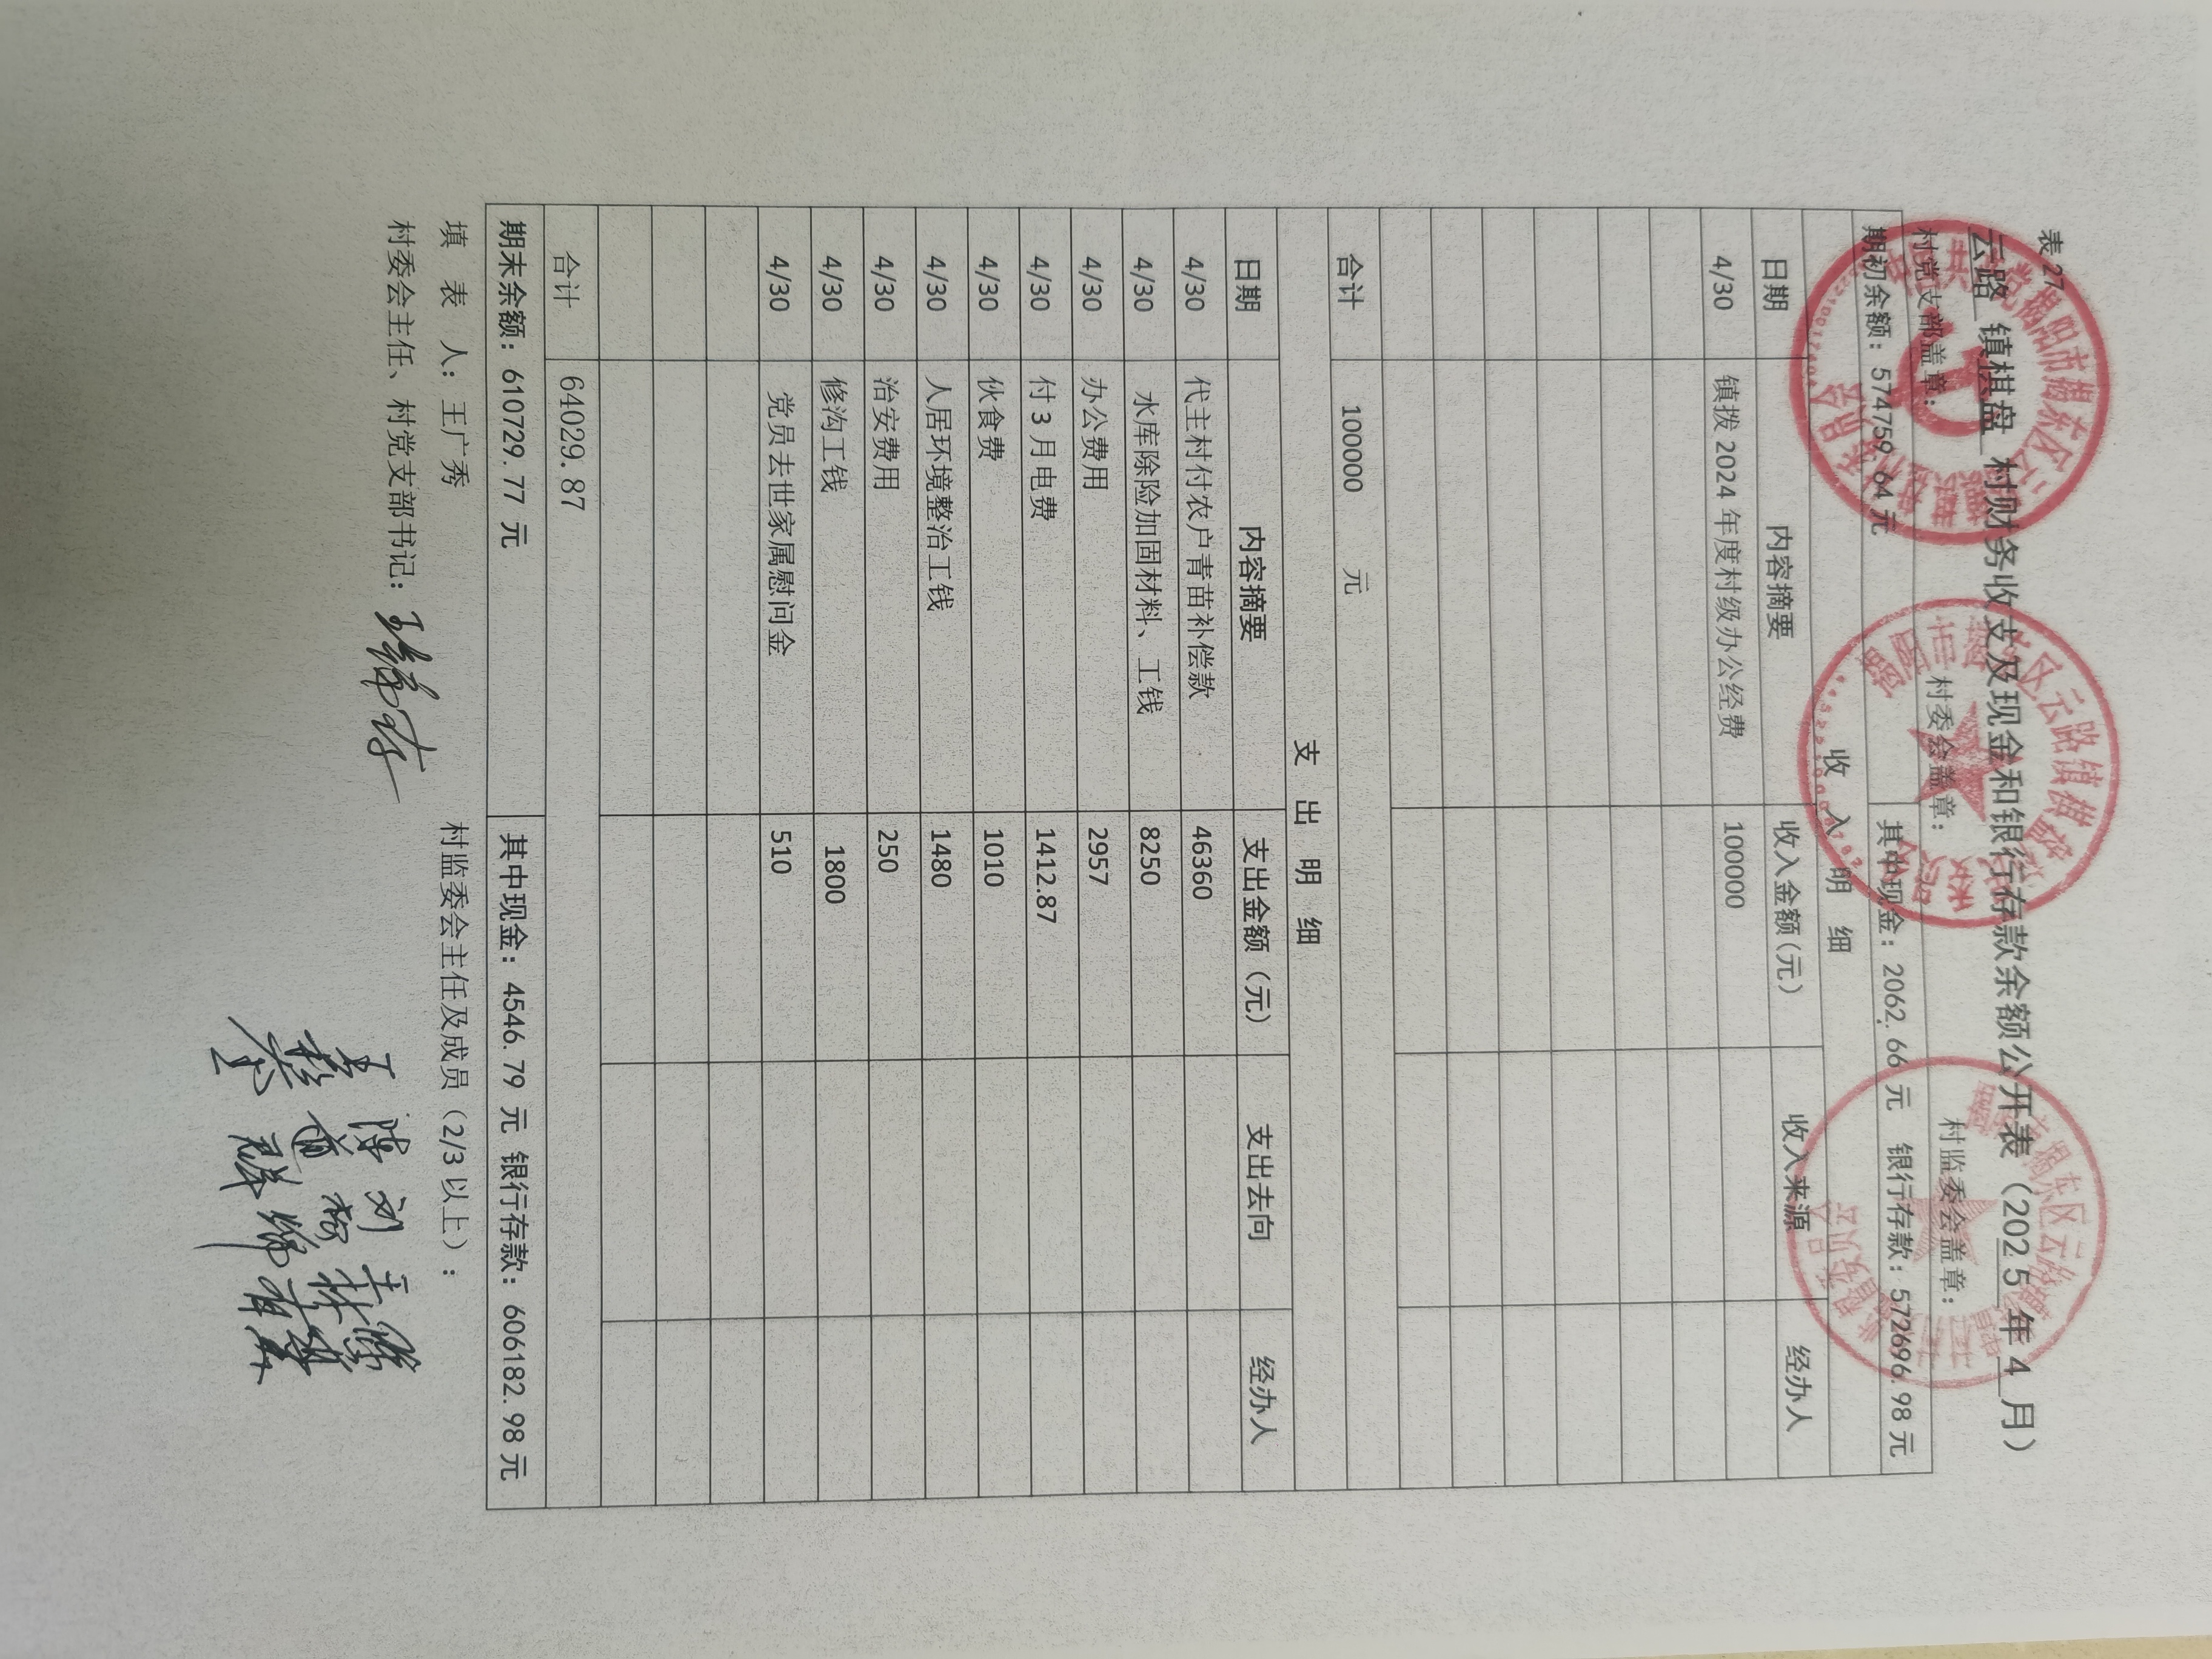 表 27
云路 镇棋盘 村财务收支及现金和银行存款余额公开表（2025 年 4 月）
村党支部盖章： 村委会盖章： 村监委会盖章：
期初余额：574759.64 元 其中现金：2062.66 元 银行存款：572696.98 元
收 入 明 细
日期 内容摘要 收入金额(元) 收入来源 经办人
4/30 镇拨 2024 年度村级办公经费 100000
合计 100000 元
支 出 明 细
日期 内容摘要 支出金额（元） 支出去向 经办人
4/30 代主村付农户青苗补偿款 46360
4/30 水库除险加固材料、工钱 8250
4/30 办公费用 2957
4/30 付 3 月电费 1412.87
4/30 伙食费 1010
4/30 人居环境整治工钱 1480
4/30 治安费用 250
4/30 修沟工钱 1800
4/30 党员去世家属慰问金 510
合计 64029.87
期末余额：610729.77 元 其中现金：4546.79 元 银行存款：606182.98 元
填 表 人：王广秀 村监委会主任及成员（2/3 以上）：
村委会主任、村党支部书记：